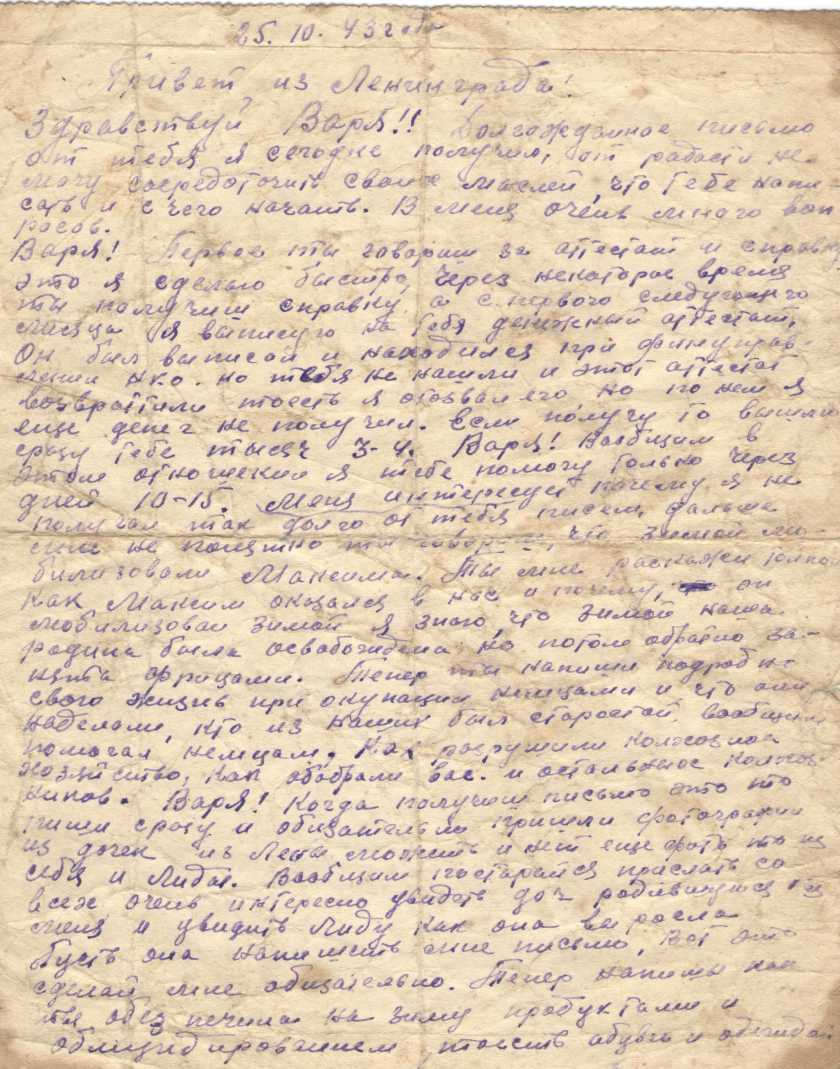 25. 10. 43 года
Привет из Ленинграда!
Здравствуй Варя!! Долгожданное письмо
от тебя я сегодне получил, от радости не
могу сосредоточить своих мыслей, что тебе напи
сать и с чего начать. В меня очень много воп
росов.
Варя! Первое ты говориш за аттестат и справку
это я сделаю быстро, через некоторое время
ты получиш справку, а с первого следующего
месяца я выпишу на тебя денежный аттестат,
Он был выписан и находился при финуправ-
лении НКО. но тебя не нашли и этот аттестат
возвратили тоесть я отозвал его но по нем я
еще денег не получил. Если получу то вышлю
сразу тебе тысяч 3-4. Варя! Вообщим в
этом отношении я тебе помогу только через
дней 10-15. Меня интересует почему я не
получал так долго от тебя писем, дальше
мне не понятно ты говориш, что зимой мо-
билизовали Максима. Ты мне раскажи
как Максим оказался в нас и почему, он
мобилизован зимой я знаю, что зимой наша
родина была освобождена но потом обратно за-
нята фрицами. Тепер ты напиши подробно
свою жизнь при окупации немцами и что они
наделали, кто из наших был старостой, вообщим
помогал немцам, Как разрушили колхозное
хозяйство, как обобрали вас. и остальных колхоз
ников. Варя! Когда получиш письмо это то
пиши сразу и обязательно пришли фотографии
из дочек из Лены, сможеть и нет еще фото то из
себя и Лиды. Вообщим постарайся прислать со
всех очень интересно увидеть доч родившуюся
меня и увидить Лиду как она выросла
Пусть она напишеть мне письмо, вот это
сделай мне обизательно. Тепер напиши как
ты обезпечина на зиму продуктами и
обмундированием, тоесть обувь и одежда.